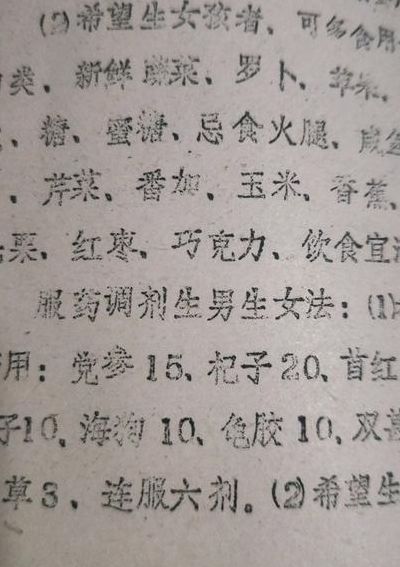 (2)希望生女孩者、可多食用
类、新鲜蔬菜、罗卜、苹果、
、糖、蛋糖、忌食火腿、咸
、芹菜、番加、玉米、香蕉、
栗、红枣、巧克力、饮食宜
服药调剂生男生女法：(1)
用：党参15、杞子20、首红
子10、海狗10、龟胶10、双甚
草3、连服六剂。(2)希望生